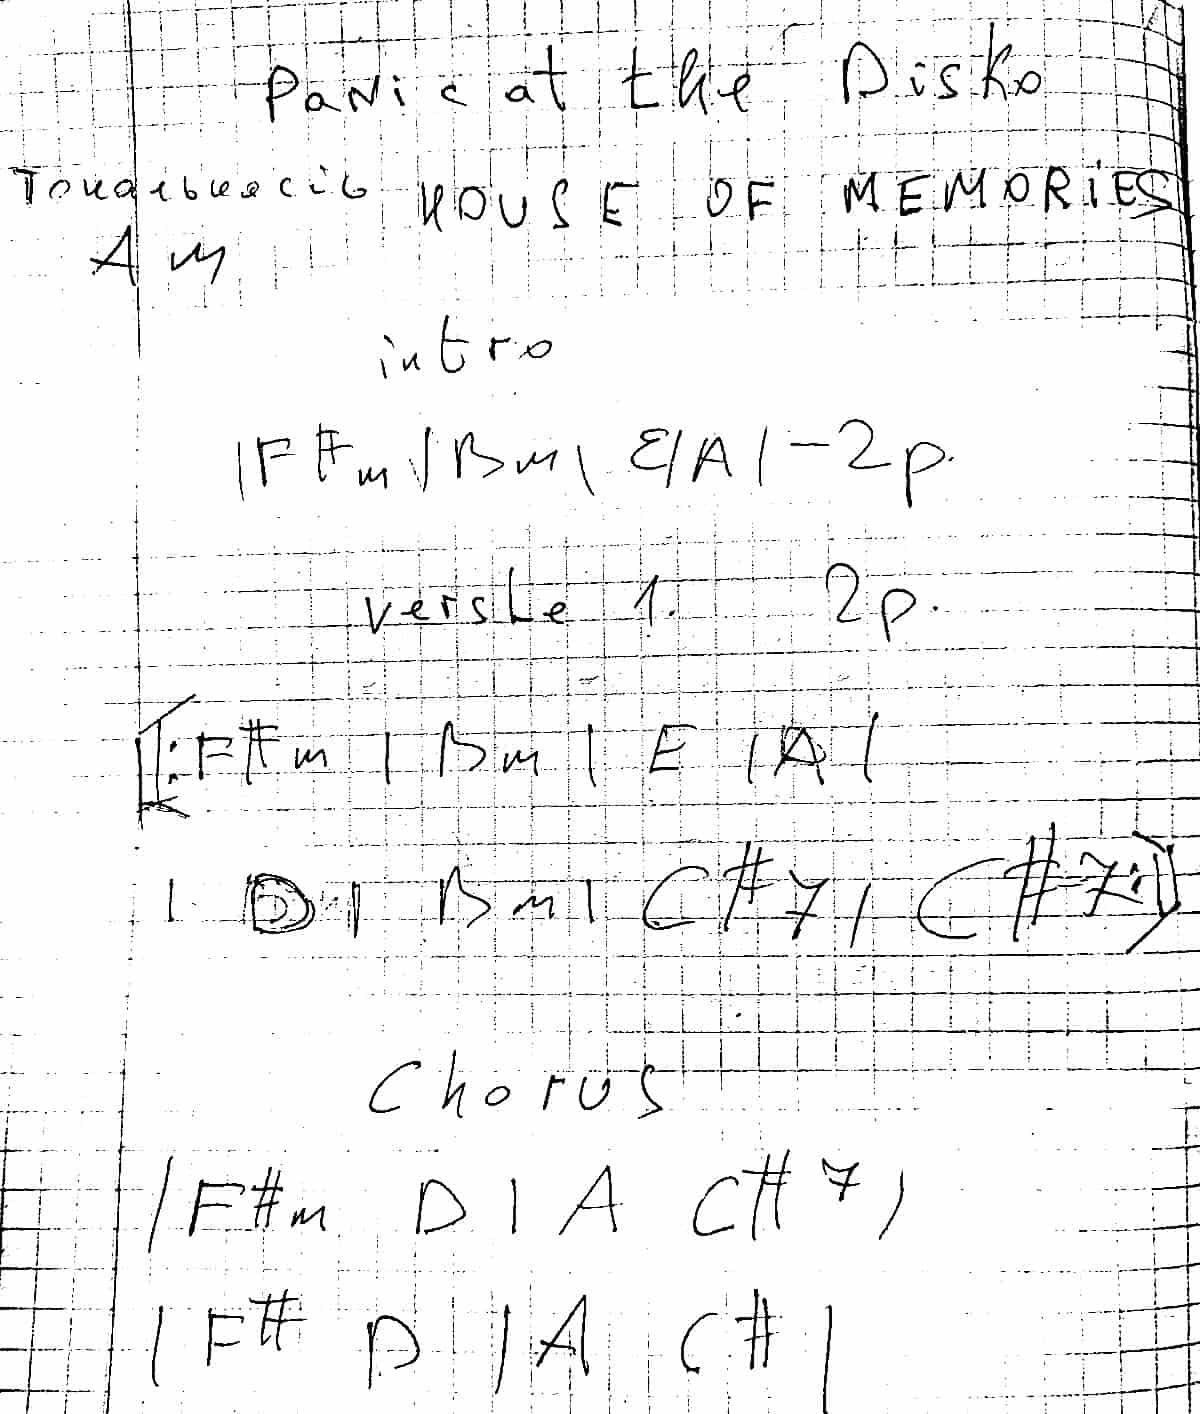 Panic at the Disko
Тональність HOUSE OF MEMORIES
Am
intro
|F#m|Bm|E|A|-2p.
versLe 1. 2p.
[|:F#m|Bm|E|A|
|D|Bm|C#7|C#7:|]
Chorus
|F#m D|A C#7|
|F# D|A C#|